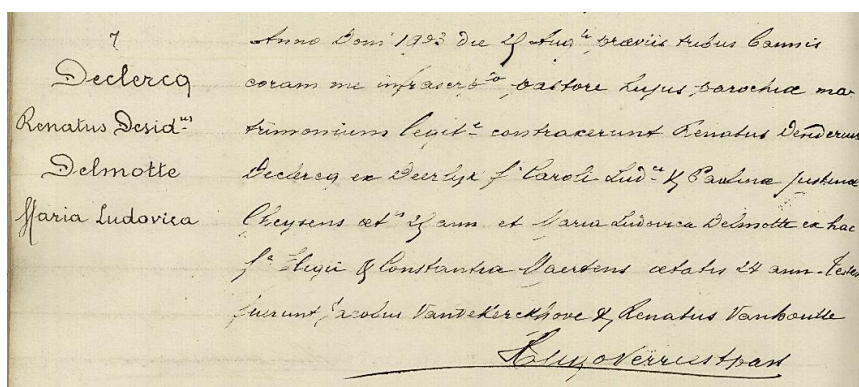 7
Declercq
Renatus Desid.us
Delmotte
Maria Ludovica
Anno Domi 1923 die 25 Aug.ti præviis tribus bannis
coram me infrascrto pastore hujus parochiæ ma-
trimonium legit.e contraxerunt Renatus Desiderius
Declercq ex Deerlyk f.s Caroli Lud.ci & Paulinæ Justinæ
Cheysens æt.is 25 ann et Maria Ludovica Delmotte ex hac
f.a Eligii & Constantiæ Maertens ætatis 24 ann. Testes
fuerunt Vandekerckhove & Renatus Vanhoutte
Hugo Verriest past